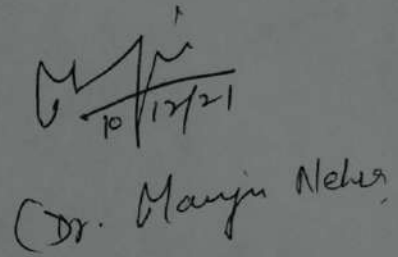 10/12/21
(Dr. Manju Nehra